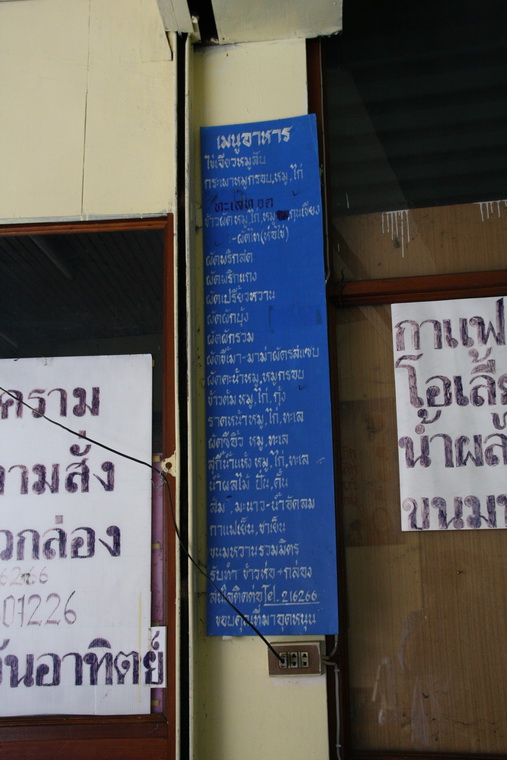 เมนูอาหาร
ไข่เจียวหมูสับ
กระเพาหมูกรอบ,หมู,ไก่
ทะเลทอด
ข้าวผัดหมู,ไก่,หมู กุนเชียง
-ผัดไท(ห่อไข่)
ผัดพริกสด
ผัดพริกแกง
ผัดเปรี้ยวหวาน
ผัดผักบุ้ง
ผัดผักรวม
ผัดขี้เมา-มาม่าผัดรสแซบ
ผัดคะน้าหมู,หมูกรอบ
ข้าวต้มหมู,ไก่,กุ้ง
ราดหน้าหมู,ไก่,ทะเล
ผัดซีอิ๊ว หมู,ทะเล
สุกี้น้ำแห้ง หมู,ไก่,ทะเล
น้ำผลไม้ ปั่น,คั้น
ส้ม,มะนาว-น้ำอัดลม
กาแฟเย็น,ชาเย็น
ขนมหวานรวมมิตร
รับทำ ข้าวห่อ+กล่อง
สนใจติดต่อ Tel. 216266
ขอบคุณที่มาอุดหนุน
คราม
ามสั่ง
วกล่อง
6266
01226
วันอาทิตย์
กาแฟ
โอเลี้ย
น้ำผล
ขนมห